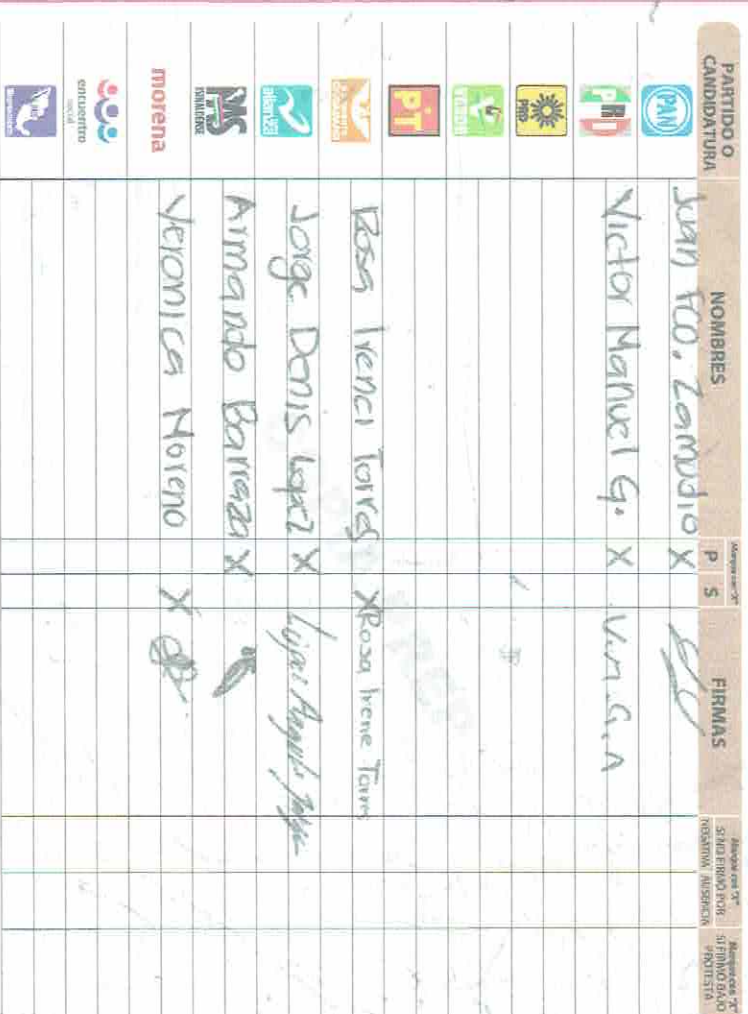 PARTIDO O CANDIDATURA NOMBRES Marque con "X" P S FIRMAS Marque con "X" SI NO FIRMÓ POR NEGATIVA AUSENCIA Marque con "X" SI FIRMÓ BAJO PROTESTA
PAN Juan Fco. Zamudio X
PRI Victor Manuel G. X V.M.G.A
PRD
VERDE
PT
MOVIMIENTO CIUDADANO Rosa Irenci Torres X Rosa Irene Torres
alianza Jorge Denis Lopez X
PAS SINALOENSE Armando Barraza X
morena Veronica Moreno X
encuentro social
COPIA PREP